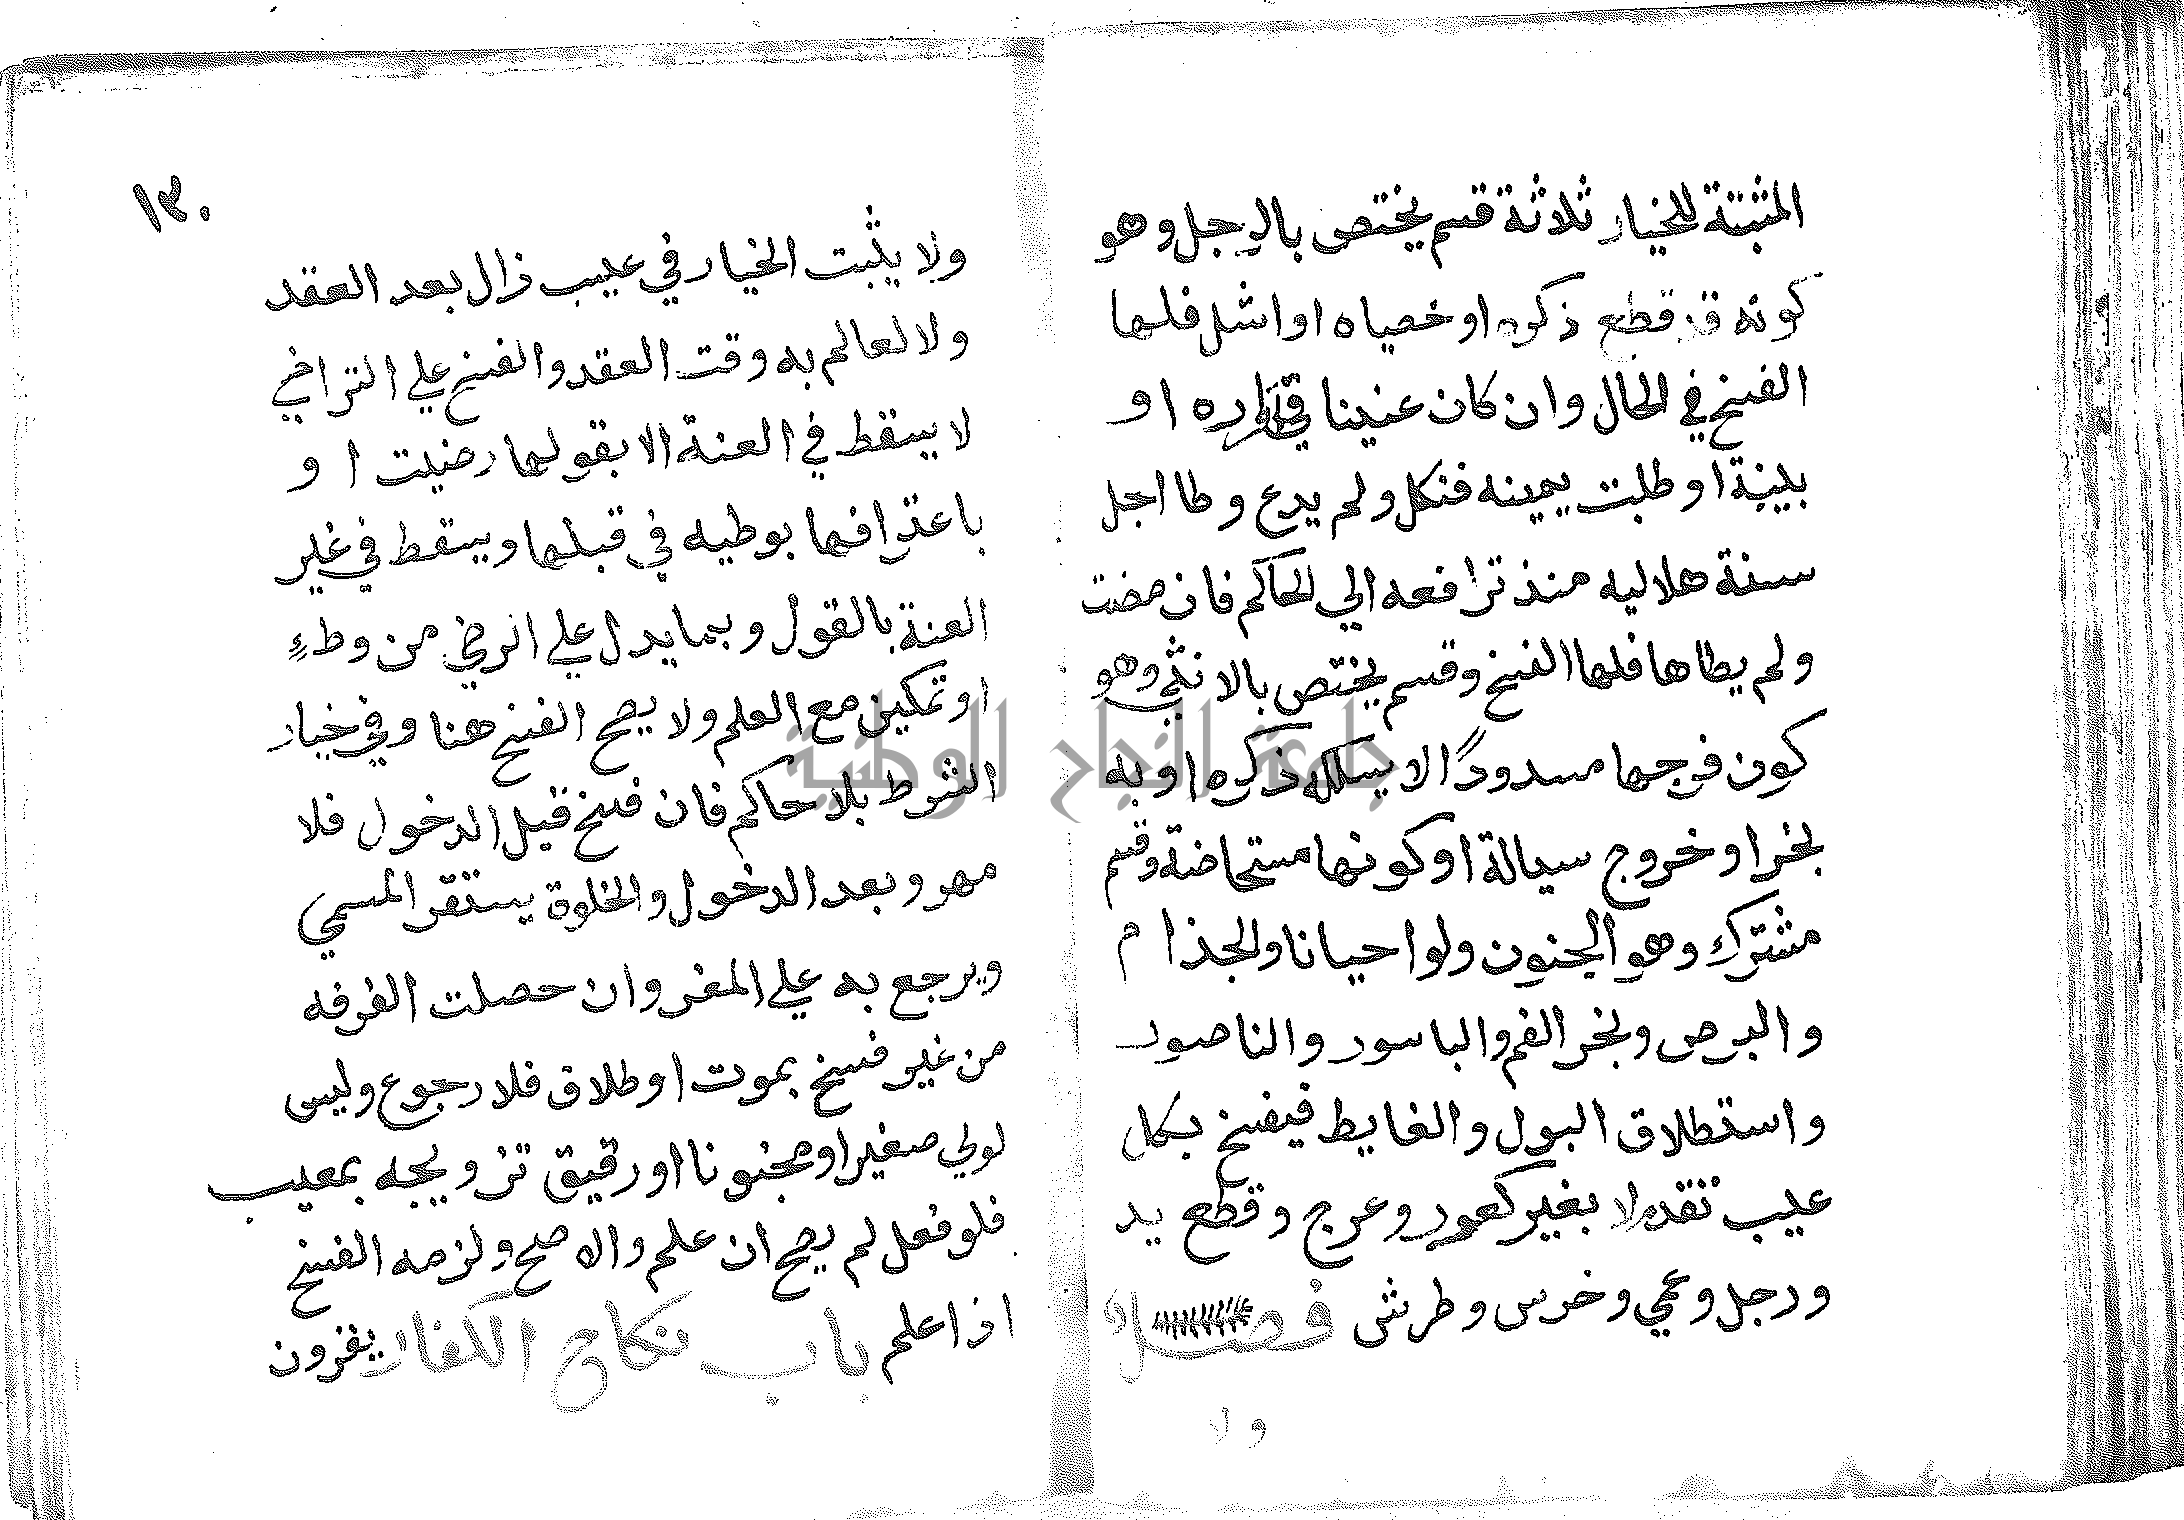 المثبتة للخيار ثلاثة قسم يختص بالرجل وهو
كونه قد قطع ذكره او خصياه او اشل فلها
الفسخ في الحال وان كان عنينا باقراره او
ببينة او طلبت يمينه فنكل ولم يدع وطا اجل
سنة هلاليه منذ ترافعه الي الحاكم فان مضت
ولم يطاها فلها الفسخ وقسم يختص بالانثي وهو
كون فرجها مسدودًا لا يسلكه ذكره او به
بخر او خروج سيالة او كونها مستحاضة وقسم
مشترك وهو الجنون ولو احيانا والجذام
والبرص وبخر الفم والباسور والناصور
واستطلاق البول والغايط فيفسخ بكل
عيب تقدم لا بغير كعور وعرج وقطع يد
ورجل وعمي وخرس وطرش فصل
ولا
١٣٠
ولا يثبت الخيار في عيب زال بعد العقد
ولا لعالم به وقت العقد والفسخ علي التراخي
لا يسقط في العنة الا بقولها رضيت او
باعترافها بوطيه في قبلها ويسقط في غير
العنة بالقول وبما يدل علي الرضي من وطءٍ
او تمكين مع العلم ولا يصح الفسخ هنا وفي خيار
الشرط بلا حاكم فان فسخ قبل الدخول فلا
مهر وبعد الدخول والخلوة يستقر المسمي
ويرجع به علي المغر وان حصلت الفرقه
من غير فسخ بموت او طلاق فلا رجوع وليس
لولي صغير او مجنون او رقيق تزويجه بمعيب
فلو فعل لم يصح ان علم والا صح ولزمه الفسخ
اذا علم باب نكاح الكفار يقرون
جامعة النجاح الوطنية